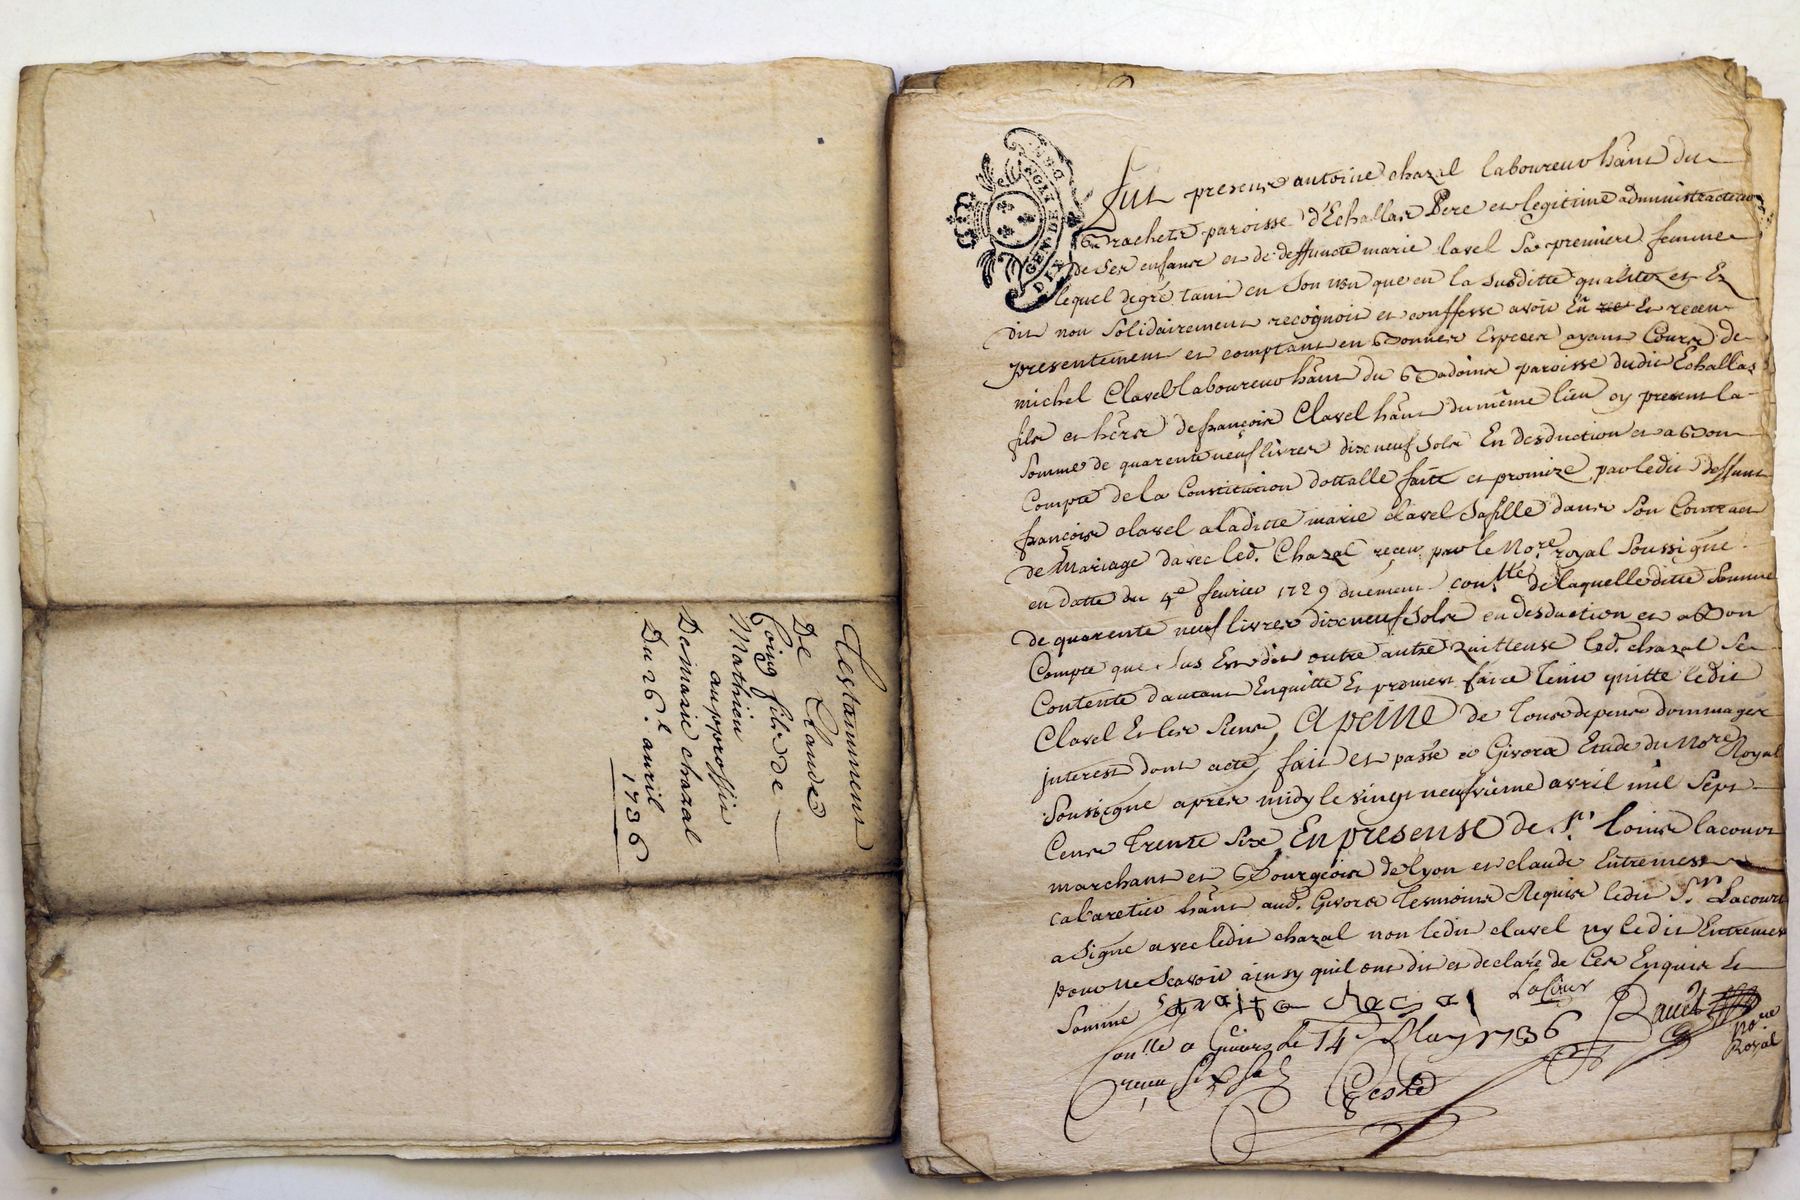 Testament
De Claude
Coing fils de
Mathieu
au proffit
De marie chazal
Du 26.e auril
1736
GEN DIX DEN
GENERALITE
Fut present antoine chazal laboureur hãnt du
paroisse d'Echallas Pere et legitime administracteur
de ses enfans et de deffuncte marie lavel Sa premiere femme
lequel degré tant en Son nom que en la Susditte qualitez et
dit non Solidairement recognoit et conffesse avoir Eü et receu
presentement et comptant en Bonnes Especes ayant Cours de
michel Clavel laboureur hãnt du Badoin paroisse dudit Echallas
fils et hers de françois Clavel hãnt du même lieu ÿ present la
Somme de quarente neuf livres dixneuf Sols En desduction et a Bon
Compte de la Constitution dottalle faitte et promize par ledit deffunt
françois clavel a laditte marie clavel Sa fille dans Son Contract
de Mariage davec led. Chazal receu par le Nore royal Soussigné
en datte du 4e fevrier 1729 düement conllé de laquelle ditte Somme
de quarente neuf livres dixneuf Sols en desduction et a Bon
Compte que Sus Est dit outre autre quittense led. chazal Se
Contente d'autant Enquitte Et promest faire tenir quitte ledit
Clavel Et les Siens, A peine de tous depens dommages
interest dont acte, fait et passé a Givors Etude du Nore Royal
Soussigné apres midy le vingt neufvieme avril mil Sept
Cens trente Six En presense de Sr. Louis lacour
marchant et Bourgeois de lyon et claude Entremest
cabaretier hãnt aud. Givors tesmoins Requis ledit Sr. Lacour
a Signé avec ledit chazal non ledit clavel ny ledit Entremest
pour ne Scavoir ainsy quil ont dit et declaré de Ces Enquis Et
Sommé antoine chazal LaCour
Conllé a Givors le 14e May 1736
receu Six Sols
Nore
Royal